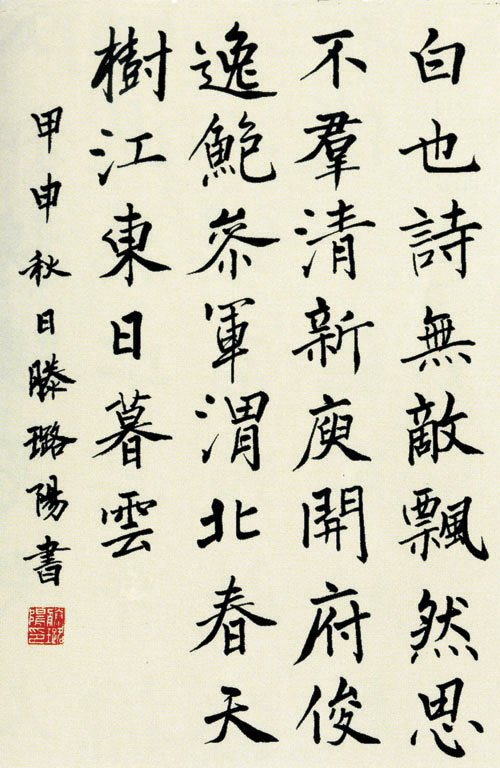 白也詩無敵飄然思
不羣清新庾開府俊
逸鮑參軍渭北春天
樹江東日暮雲
甲申秋日滕璐陽書